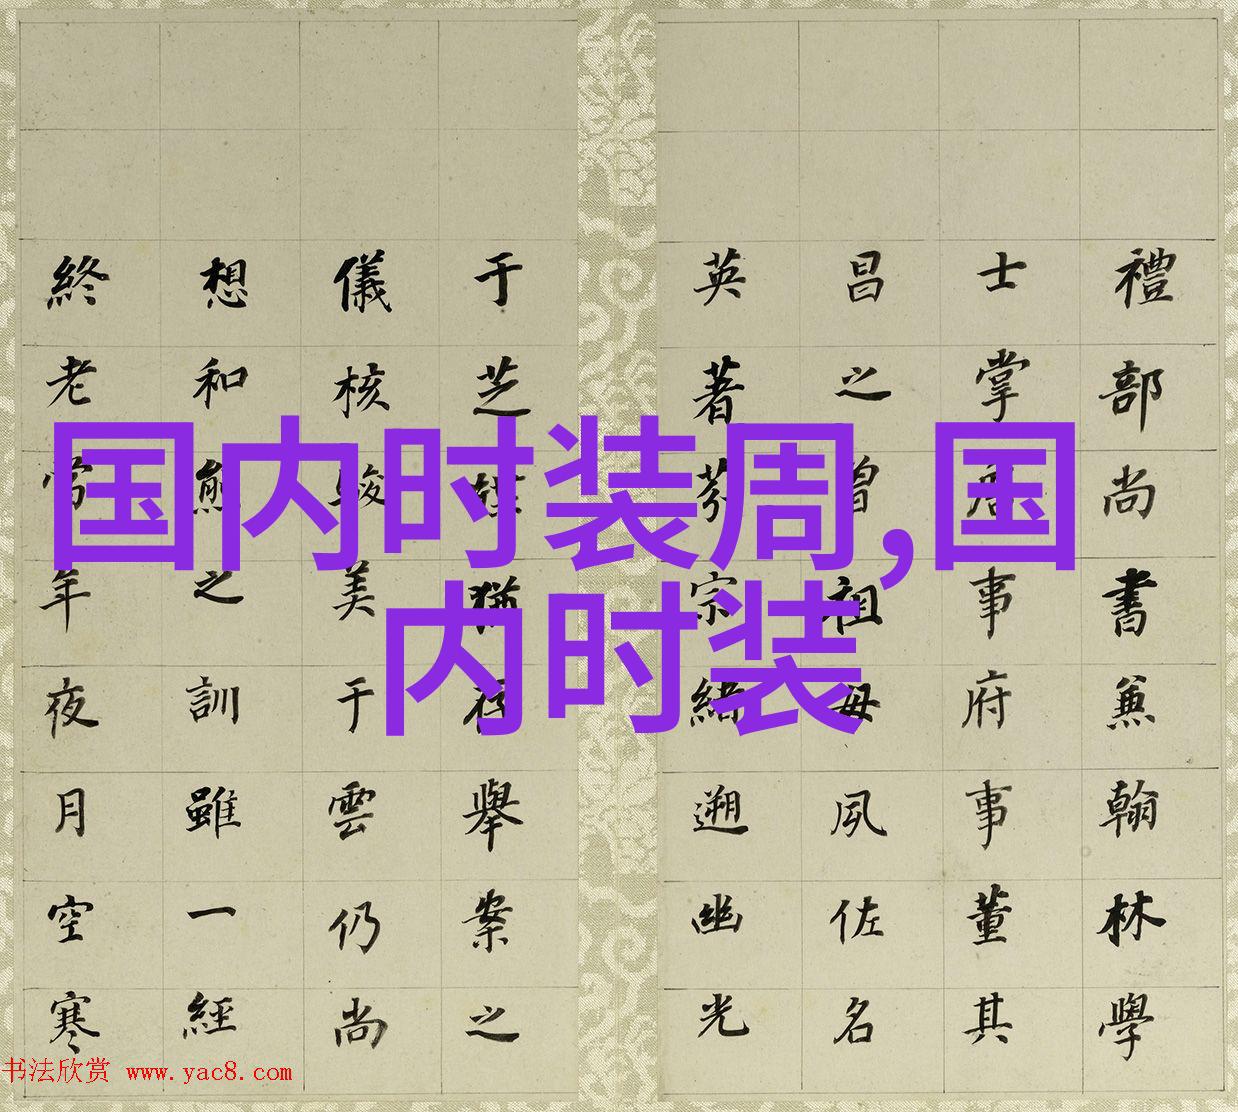 禮部尚書兼翰林學
士掌詹事府事董其
昌之曾祖母夙佐名
英著芬宗緒遡幽光
于芝猶存舉案之
儀核駿美于雲仍尚
想和熊之訓雖一經
終老常年夜月空寒
国内时装周,国
内时装
书法欣赏 www.yac8.com